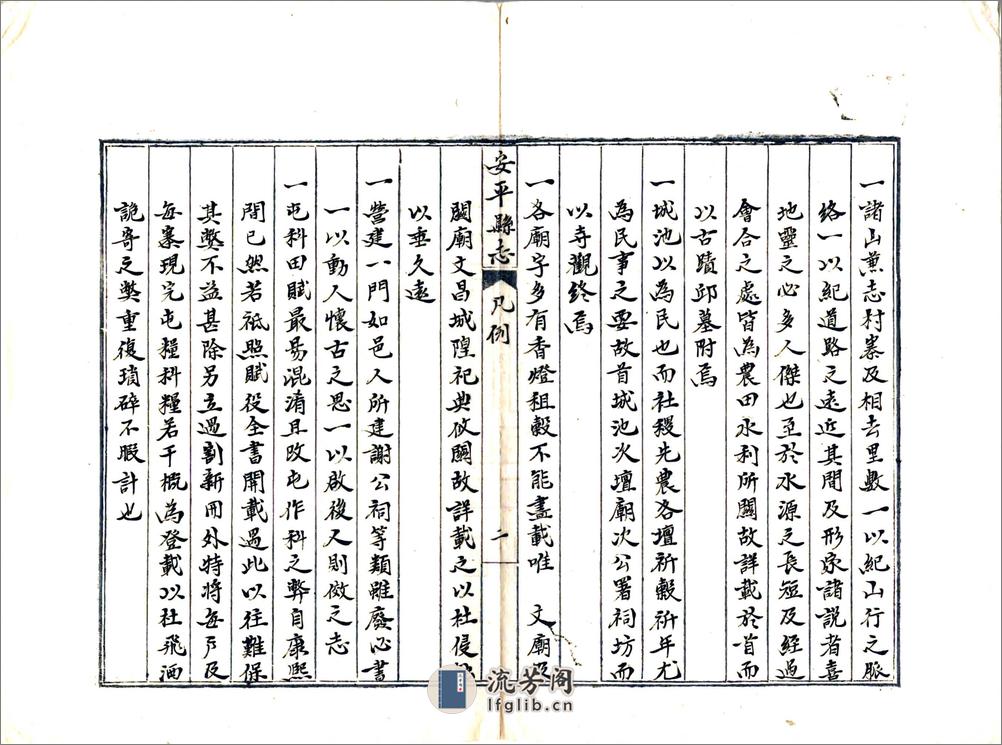 一諸山兼志村寨及相去里數一以紀山行之脈
絡一以紀道路之遠近其間及形家諸說者喜
地靈之心多人傑也至於水源之長短及經過
會合之處皆為農田水利所關故詳載於首而
以古蹟邱墓附焉
一城池以為民也而社稷先農各壇祈穀祈年尤
為民事之要故首城池次壇廟次公署祠坊而
以寺觀終焉
一各廟宇多有香燈租穀不能盡載唯 文廟
安平縣志 凡例 二
關廟文昌城隍祀典攸關故詳載之以杜侵
以垂久遠
一營建一門如邑人所建謝公祠等類雖廢必書
一以動人懷古之思一以啟後人則傚之志
一屯科田賦最易混淆且改屯作科之弊自康熙
間已然若祇照賦役全書開載過此以往難保
其獘不益甚除另立過割新冊外特將每戶及
每寨現完屯糧科糧若干概為登載以杜飛洒
詭寄之獘重復瑣碎不暇計也
流芳阁
lfglib.cn